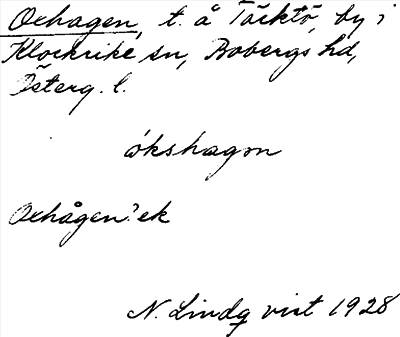 Oxhagen, t. å Täcktö, by i
Klockrike sn, Bobergs hd,
Österg. l.
ókshagən
Oxhågen: ek
N. Lindqvist 1928